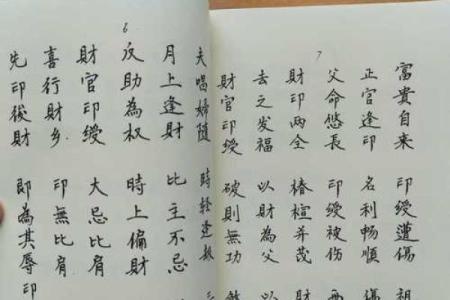 6
夫唱婦随
月上逢財 比主不忌
反助為权 時上偏財
財官印綬 大忌比肩
喜行財乡 印無比肩
先印後財 即為其辱 印
7
富貴自来 印綬遭傷
正官逢印 名利暢順
父命悠長 印綬被伤
財印两全 椿楦并茂
去之发福 以財為父
財官印綬 破則無功